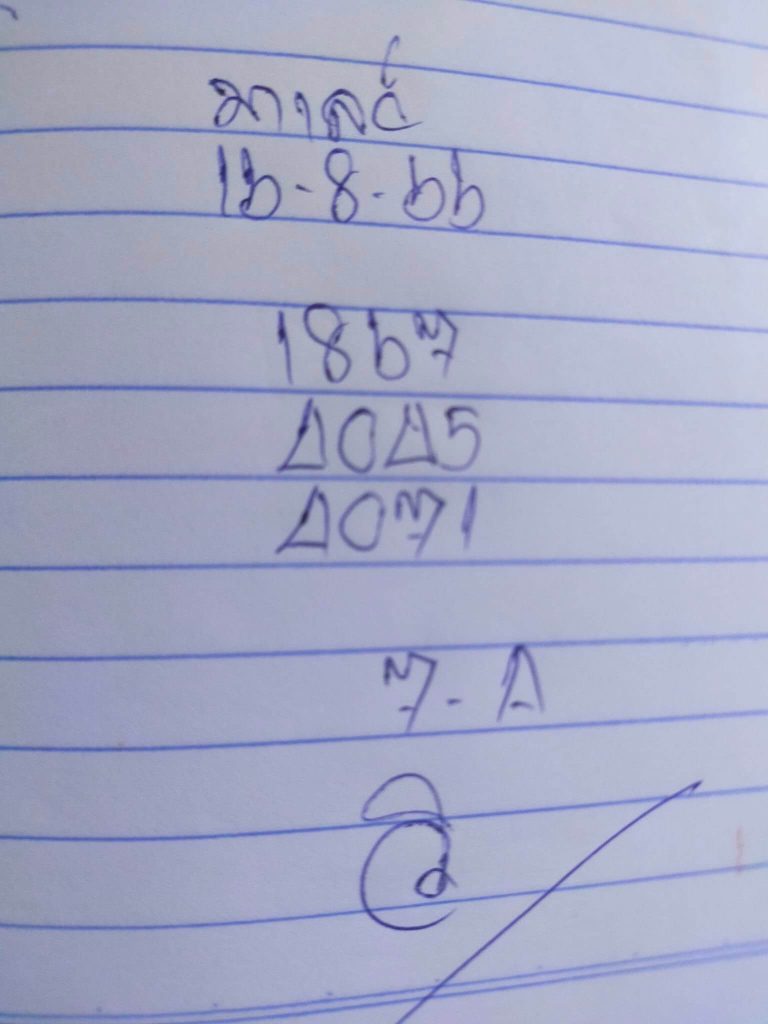 มาเลย์
16-8-66
1867
4045
4071
7-4